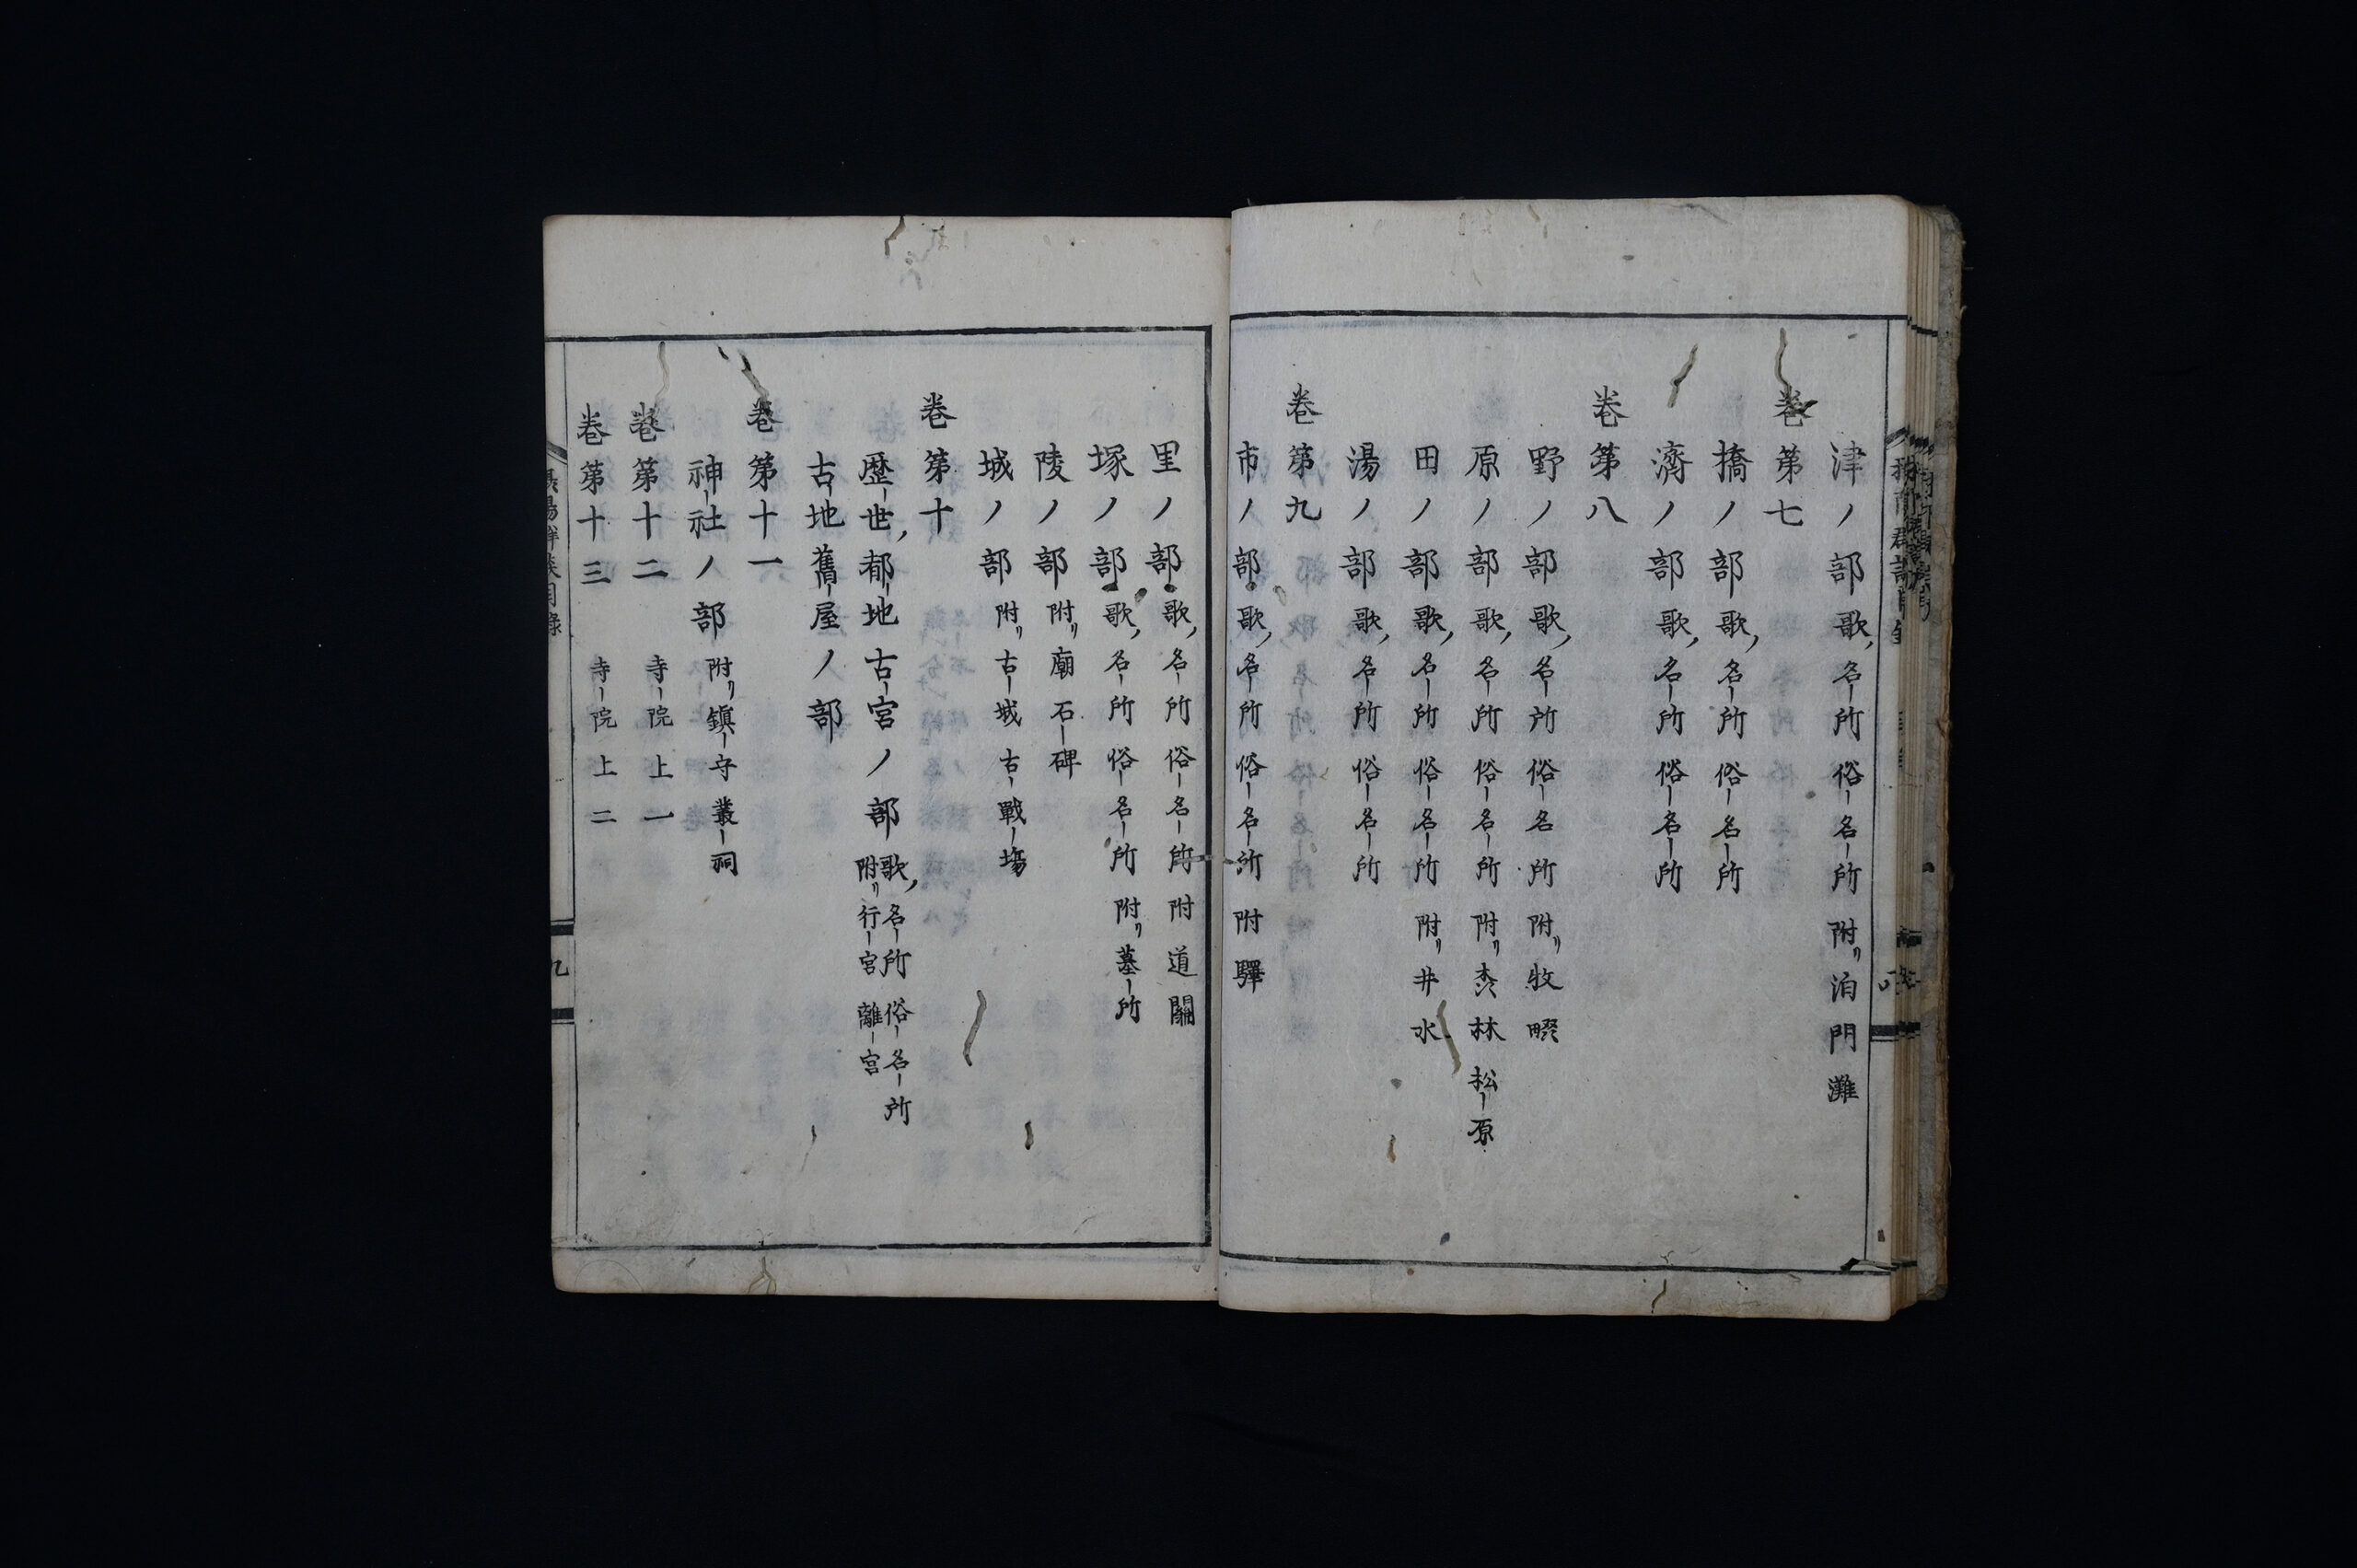 津ノ部歌名所俗名所附リ泊門灘
巻第七
橋ノ部歌名所俗名所
濟ノ部歌名所俗名所
巻第八
野ノ部歌名所俗名所附リ牧畷
原ノ部歌名所俗名所附リ森林松原
田ノ部歌名所俗名所附リ井水
湯ノ部歌名所俗名所
巻第九
市ノ部歌名所俗名所附驛
里ノ部歌名所俗名所附道關
塚ノ部歌名所俗名所附リ墓所
陵ノ部附リ廟石碑
城ノ部附リ古城古戰塲
巻第十
歴世都地古宮ノ部歌名所俗名所
附リ行宮離宮
古地舊屋ノ部
巻第十一
神社ノ部附リ鎮守叢祠
巻第十二寺院上一
巻第十三寺院上二
九